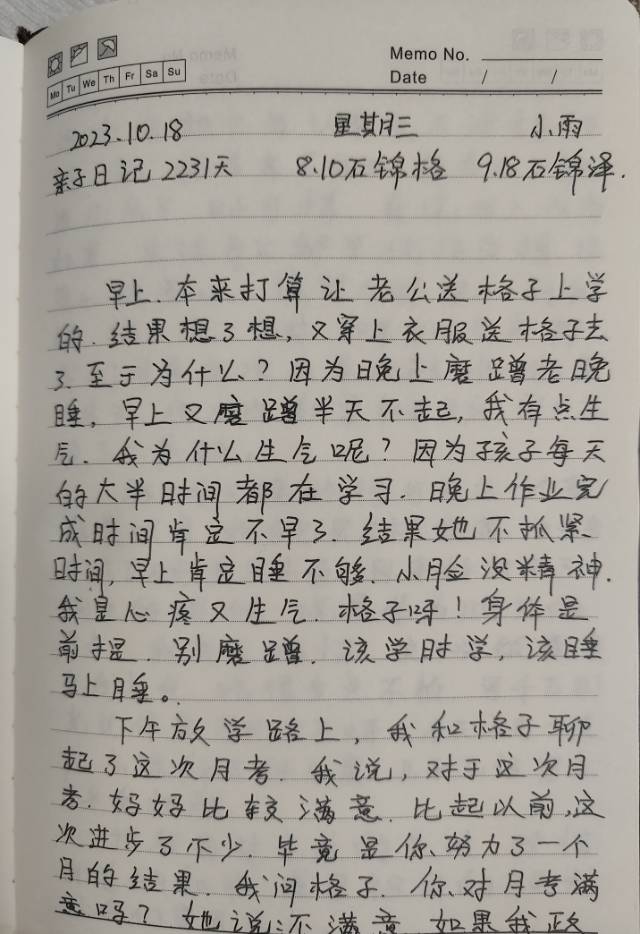 Memo No.
Mo Tu We Th Fr Sa Su
Date / /
2023.10.18 星期三 小雨
亲子日记2231天 8.10石锦格 9.18石锦泽.
早上.本来打算让老公送格子上学
的.结果想了想,又穿上衣服送格子去
了.至于为什么?因为晚上磨蹭老晚
睡,早上又磨蹭半天不起,我有点生
气.我为什么生气呢?因为孩子每天
的大半时间都在学习.晚上作业完
成时间肯定不早了.结果她不抓紧
时间,早上肯定睡不够.小脸没精神.
我是心疼又生气.格子呀!身体是
前提.别磨蹭.该学时学,该睡
马上睡。
下午放学路上,我和格子聊
起了这次月考.我说,对于这次月
考.好好比较满意.比起以前,这
次进步了不少.毕竟是你努力了一个
月的结果.我问格子.你对月考满
意吗?她说:不满意 如果我